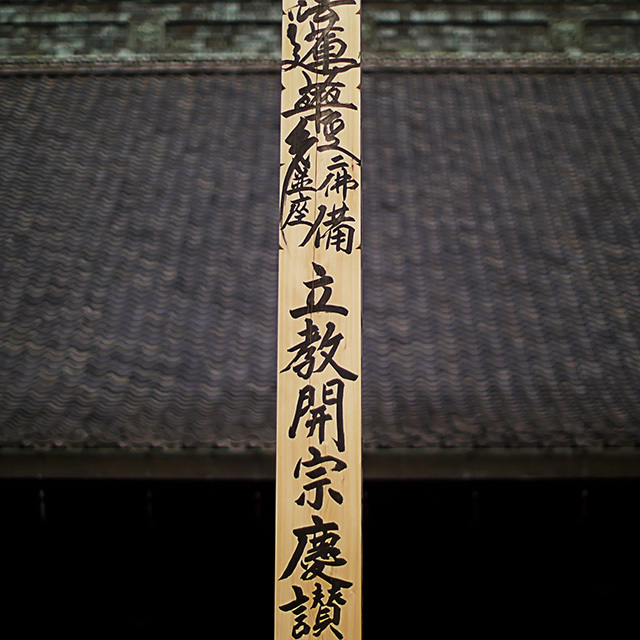 法蓮華經
二佛
座
備
立教開宗慶讃